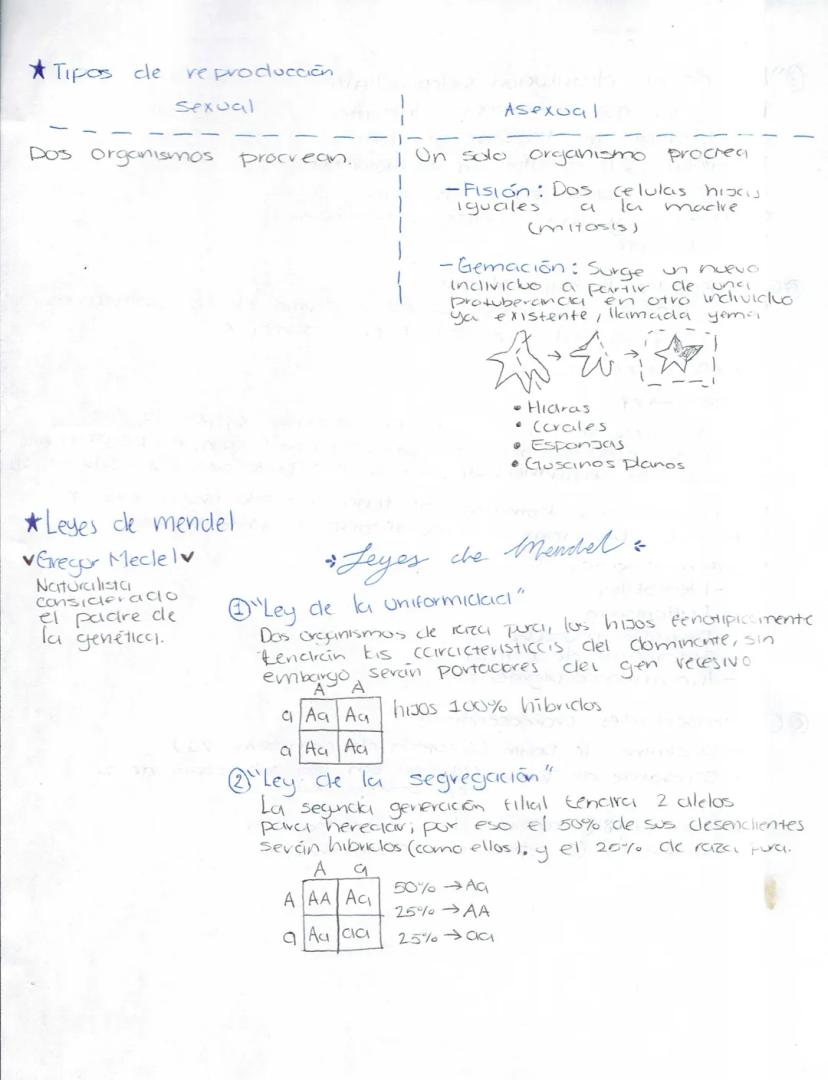 ★ Tipos de reproducción
sexual
Asexual
Dos organismos procrean.
Un solo organismo procrea
- Fisión: Dos celulas hijas
iguales a la madre
(mitosis)
- Gemación: Surge un nuevo
individuo a partir de una
protuberancia en otro individuo
ya existente, llamada yema
→ →
• Hidras
• Corales
• Esponjas
• Gusanos planos
★ Leyes de mendel
Gregor Medel
Naturalista
considerado
el padre de
la genética.
Leyes de Mendel
① "Ley de la uniformidad"
Dos organismos de raza pura, los hijos fenotipicamente
tendrán las características del dominante, sin
embargo serán portadores del gen recesivo
A A
a Aa Aa hijos 100% híbridos
a Aa Aa
② "Ley de la segregación"
La segunda generación filial tendra 2 alelos
para heredar; por eso el 50% de sus desendientes
serán hibridos (como ellos), y el 25% de raza pura.
A a
A AA Aa
a Aa aa
50% → Aa
25% → AA
25% → aa